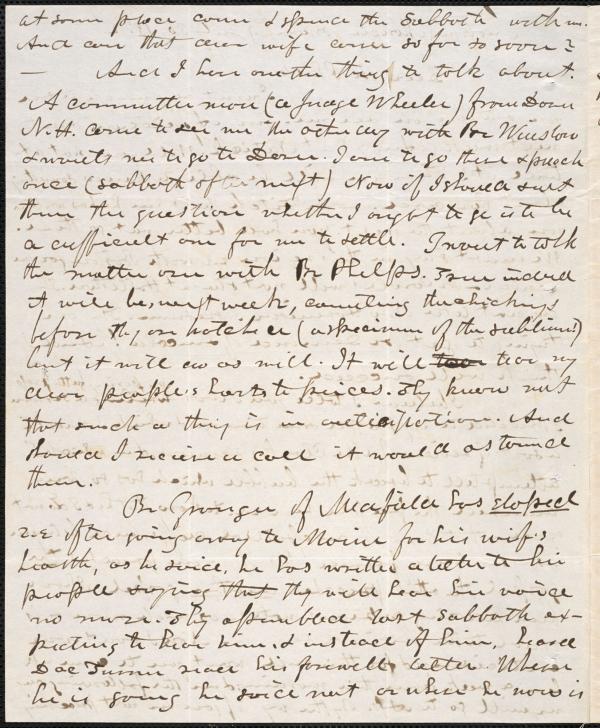 at some place come & spend the Sabbath with us.
And can that dear wife come so far so soon?
— And I have another thing to talk about.
A committee man (a Judge Wheeler) from Dover
N.H. came to see me the other day with Br Winslow
& wants me to go to Dover. I am to go there & preach
once (Sabbath after next) Now if I should suit
them the question whether I ought to go is to be
a difficult one for me to settle. I want to talk
the matter over with Br Phelps. True indeed
it will be, next week, counting the chickings
before they are hatched (a specimen of the sublime)
but it will do as well. It will tear my
dear people's hearts to pieces. They know not
that such a thing is in anticipation. And
should I receive a call it would astound
them.
Br Granger of Medfield has eloped
i.e. after going away to Maine for his wife's
health, as he said, he has written a letter to his
people saying that they will hear his voice
no more. They assembled last Sabbath ex-
pecting to hear him, & instead of him, heard
Dea Turner read his farewell letter. Where
he is going he said not or where he now is